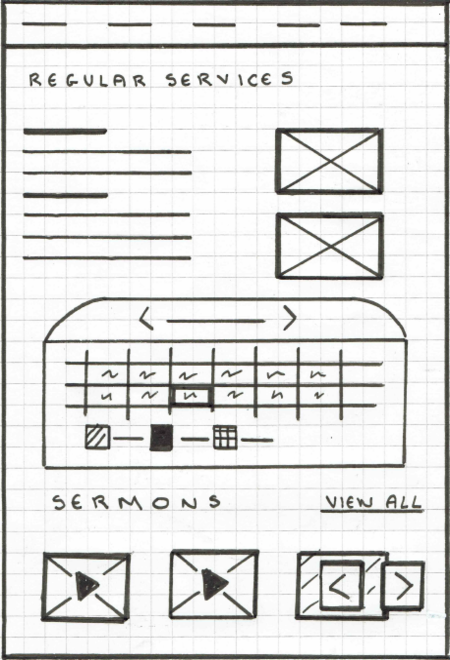 REGULAR SERVICES
SERMONS
VIEW ALL